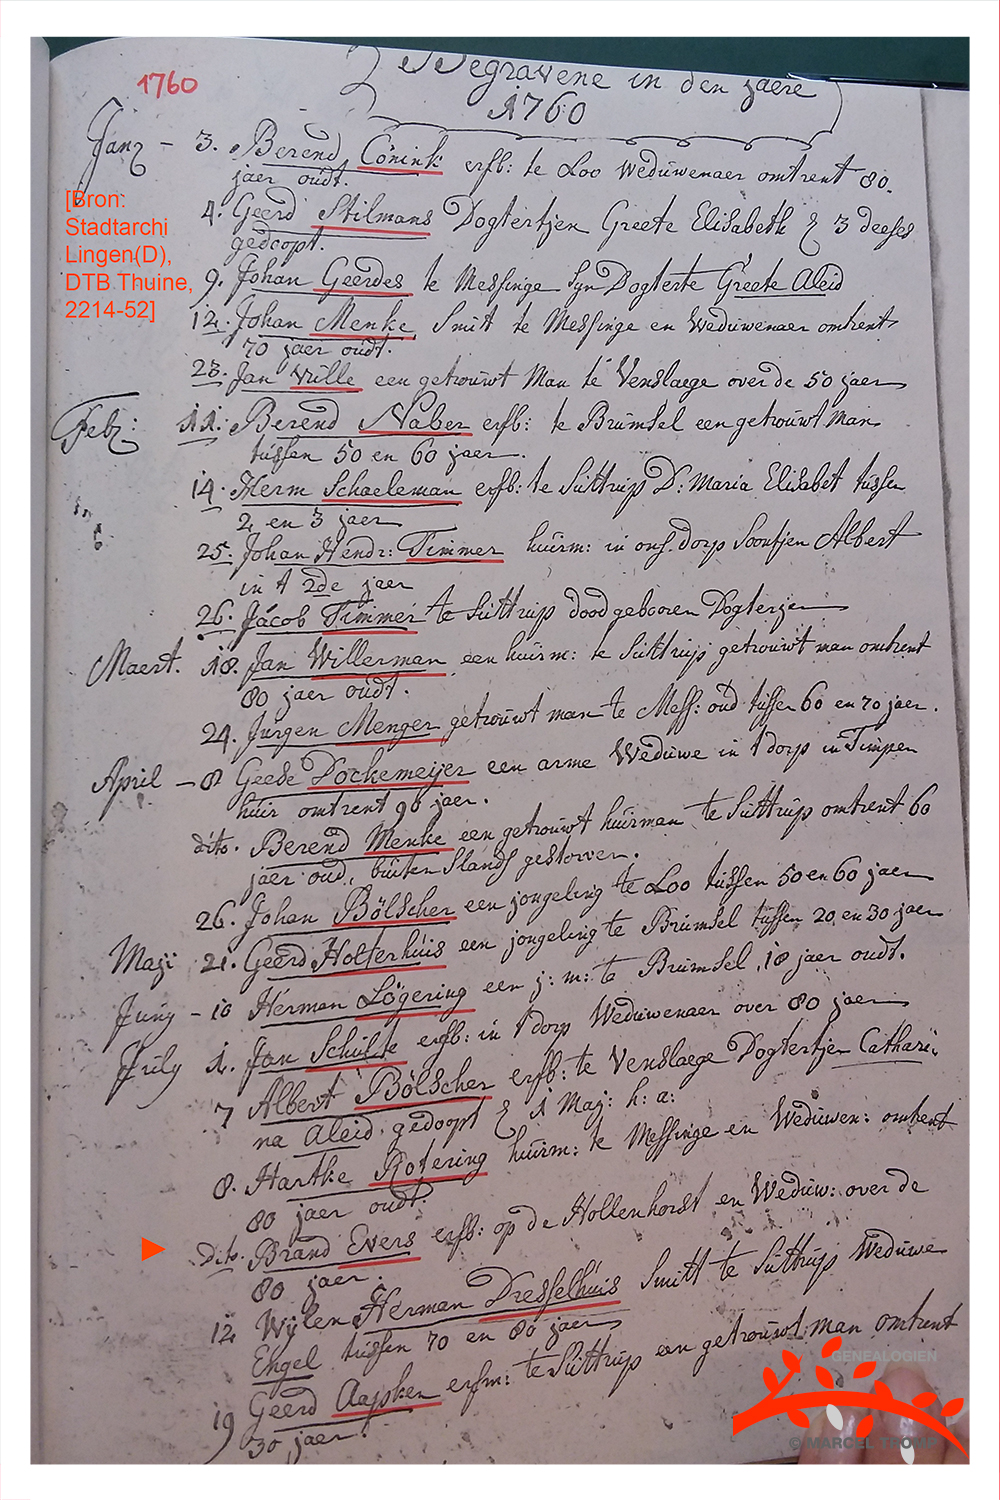 1760
Begravene in den jaere
1760
Janr – 3. Berend Conink erfb: te Loo Weduwenaer omtrent 80.
jaer oudt.
[Bron:
Stadtarchi
Lingen(D),
DTB Thuine,
2214-52]
4. Geerd Stilmans Dogtertjen Greete Elisabeth 3 deeses
gedoopt.
9. Johan Geerdes te Messinge Syn Dogterte Greete Aleid
12. Johan Menke Smit te Messinge en Weduwenaer omtrent
70 jaer oudt.
23. Jan Wille een getrouwt Man te Venslaege over de 50 jaer
Febr: 11. Berend Naber erfb: te Brumsel een getrouwt Man
tussen 50 en 60 jaer.
14. Herm Schaeleman erfb: te Suttrup D: Maria Elisabet tussen
2 en 3 jaer
25. Johan Hendr: Timmer huurm: in ons dorp Soontjen Albert
in t 2de jaer
26. Jacob Timmer te Suttrup dood gebooren Dogterjen
Maert. 18. Jan Willerman een huurm: te Suttrup getrouwt man omtrent
80 jaer oudt.
24. Jurgen Menger getrouwt man te Mess: oud tussen 60 en 70 jaer.
April – 8 Geede Dockemeijer een arme Weduwe in t dorp in Timpen
huir omtrent 90 jaer.
dito. Berend Menke een getrouwt huurman te Suttrup omtrent 60
jaer oud, buiten Slands gestorven.
26. Johan Bölscher een jongeling te Loo tussen 50 en 60 jaer
Maji 21. Geerd Holterhuis een jongeling te Brumsel tussen 20 en 30 jaer
Juny – 10 Herman Lögering een j: m: te Brumsel, 18 jaer oudt.
July 1. Jan Schulte erfb: in t dorp Weduwenaer over 80 jaer
7 Albert Bölscher erfb: te Venslaege Dogtertjen Cathari,
na Aleid, gedoopt 1 Maj: h: a:
8. Hartke Rotering huurm: te Messinge en Weduwen: omtrent
80 jaer oudt.
Dito. Brand Evers erfb: op de Hollenhorst en Weduw: over de
80 jaer.
12 Wylen Herman Dresselhuis Smitt te Suttrup Weduwe
Engel tussen 70 en 80 jaer
19 Geerd Aapken erfm: te Suttrup een getrouwt man omtrent
30 jaer.
GENEALOGIEN
© MARCEL TROMP